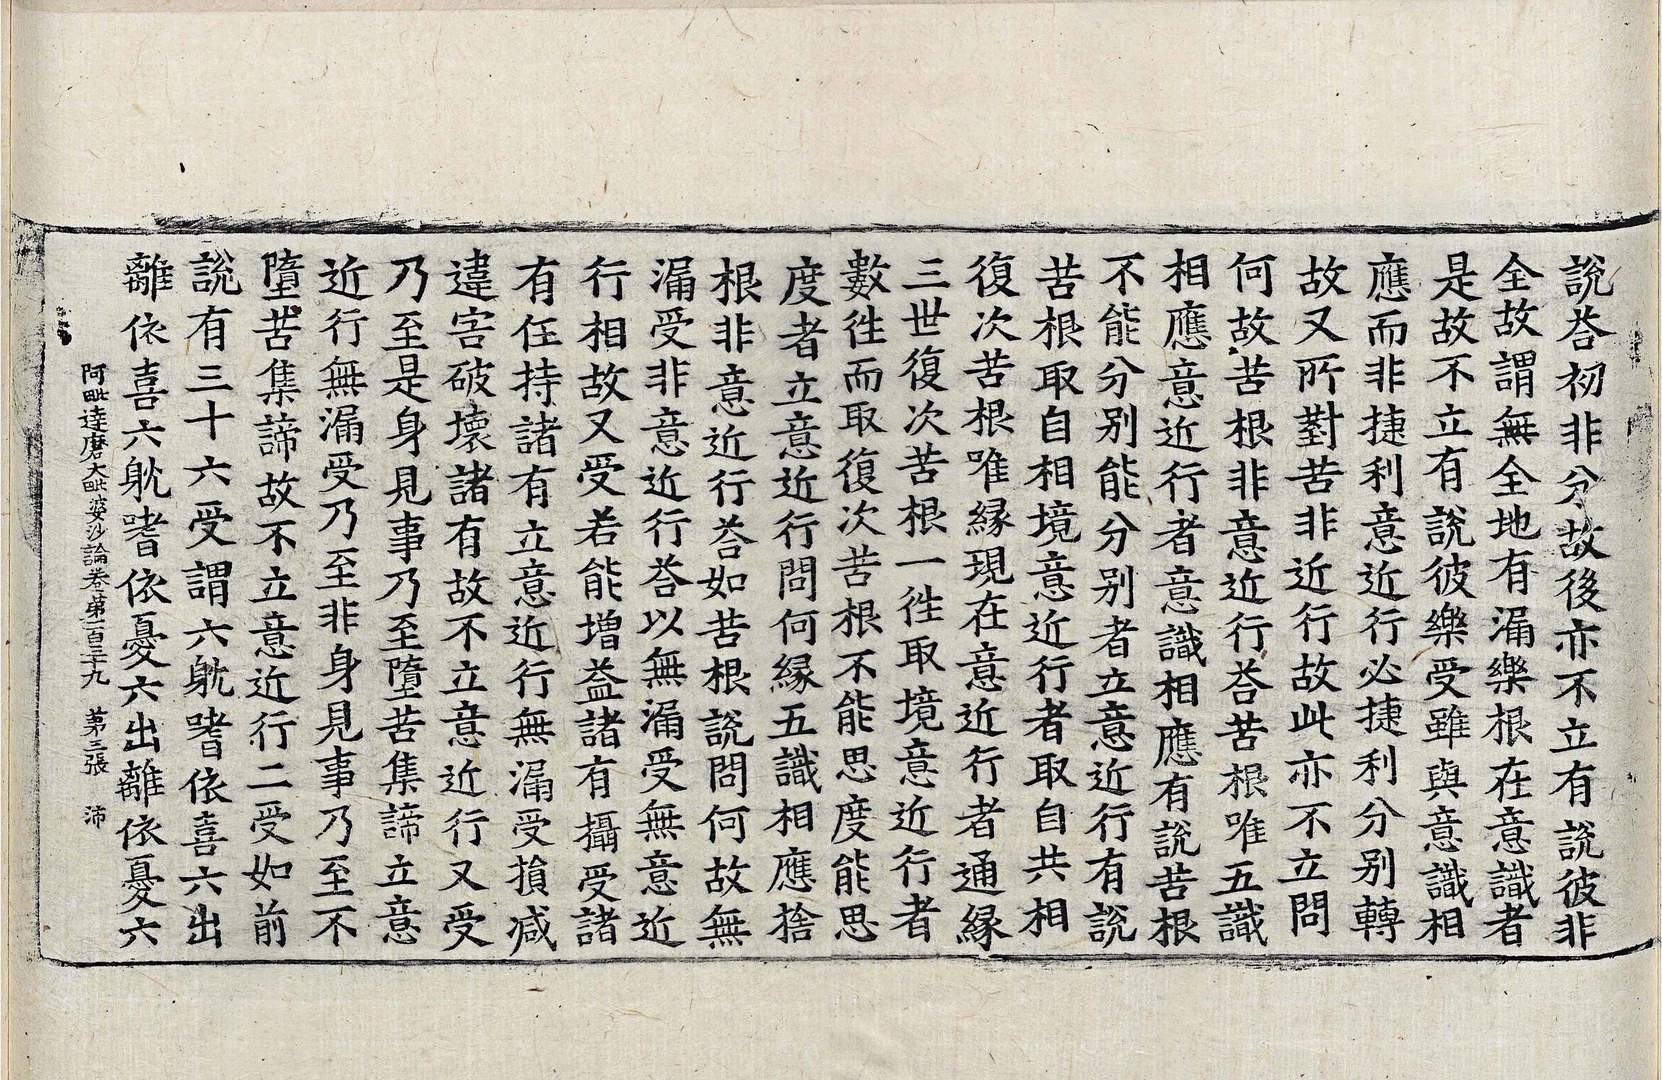 說荅初非分故後亦不立有說彼非
全故謂無全地有漏樂根在意識者
是故不立有說彼樂受雖與意識相
應而非捷利意近行必捷利分別轉
故又所對苦非近行故此亦不立問
何故苦根非意近行荅苦根唯五識
相應意近行者意識相應有說苦根
不能分別能分別者立意近行有說
苦根取自相境意近行者取自共相
復次苦根唯緣現在意近行者通緣
三世復次苦根一徃取境意近行者
數徃而取復次苦根不能思度能思
度者立意近行問何緣五識相應捨
根非意近行荅如苦根說問何故無
漏受非意近行荅以無漏受無意近
行相故又受若能增益諸有攝受諸
有任持諸有立意近行無漏受損减
違害破壞諸有故不立意近行又受
乃至是身見事乃至墮苦集諦立意
近行無漏受乃至非身見事乃至不
墮苦集諦故不立意近行二受如前
說有三十六受謂六躭嗜依喜六出
離依喜六躭嗜依憂六出離依憂六
阿毗達磨大毗婆沙論卷第一百三十九 第三張 沛